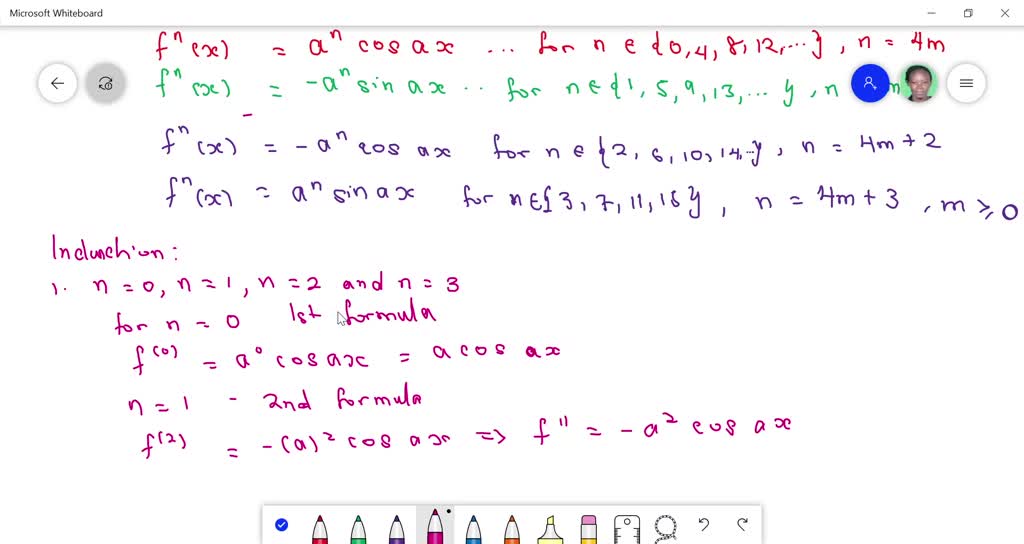 Microsoft Whiteboard
fⁿ(x) = aⁿ cos ax ... for n ∈ {0, 4, 8, 12, ...}, n = 4m
fⁿ(x) = -aⁿ sin ax .. for n ∈ {1, 5, 9, 13, ...}, n
fⁿ(x) = -aⁿ cos ax for n ∈ {2, 6, 10, 14, ..}, n = 4m + 2
fⁿ(x) = aⁿ sin ax for n ∈ {3, 7, 11, 15}, n = 4m + 3, m ≥ 0
Induction:
1. n = 0, n = 1, n = 2 and n = 3
for n = 0 1st formula
f⁽⁰⁾ = a⁰ cos ax = a cos ax
n = 1 - 2nd formula
f⁽²⁾ = -(a)² cos ax ⇒ f'' = -a² cos ax